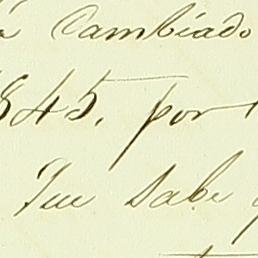 Cambiado
845, por
Que sabe